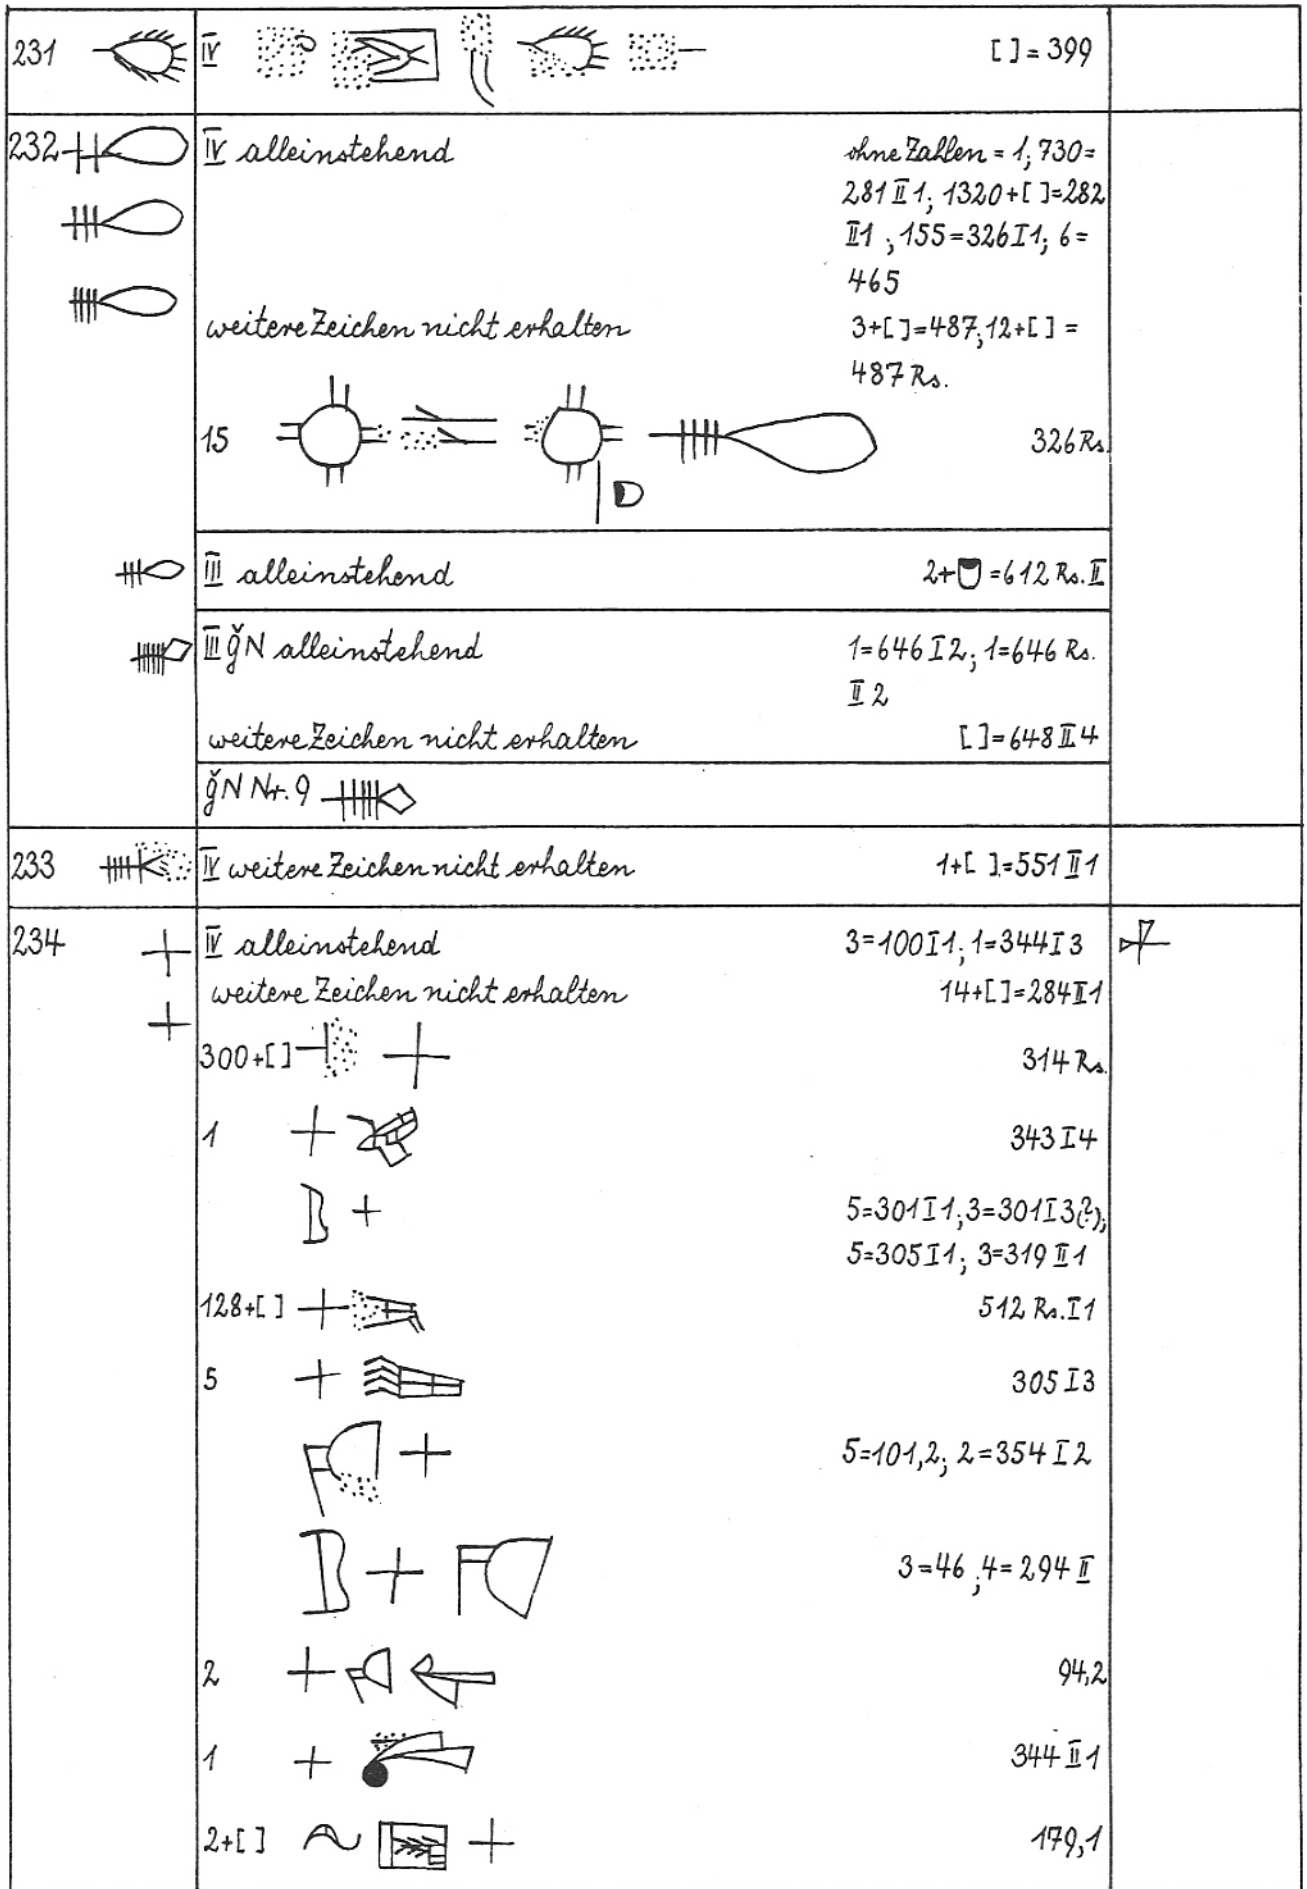 231 IV [ ]=399
232 IV alleinstehend ohne Zahlen=1, 730=
281 II 1; 1320+[ ]=282
II 1; 155=326 I 1; 6=
465
weitere Zeichen nicht erhalten 3+[ ]=487; 12+[ ]=
487 Rs.
15 326 Rs.
III alleinstehend 2+ =612 Rs. II
III ǧN alleinstehend 1=646 I 2; 1=646 Rs.
II 2
weitere Zeichen nicht erhalten [ ]=648 II 4
ǧN Nr. 9
233 IV weitere Zeichen nicht erhalten 1+[ ]=551 II 1
234 IV alleinstehend 3=100 I 1; 1=344 I 3
weitere Zeichen nicht erhalten 14+[ ]=284 II 1
300+[ ] 314 Rs.
1 343 I 4
5=301 I 1; 3=301 I 3(?);
5=305 I 1; 3=319 II 1
128+[ ] 512 Rs. I 1
5 305 I 3
5=101,2; 2=354 I 2
3=46; 4=294 II
2 94,2
1 344 II 1
2+[ ] 179,1